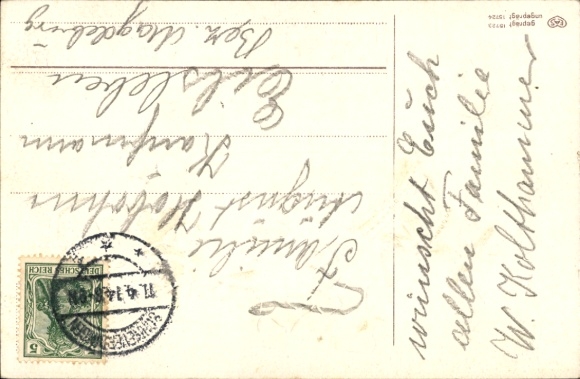 Familie
August Hobohm
Kaufmann
Eilsleben
Bez. Magdeburg
wünscht Euch
allen Familie
W. Kolthammer
DEUTSCHES REICH
5
11.4.14.8-9N
EAS
geprägt 15723
ungeprägt 15724